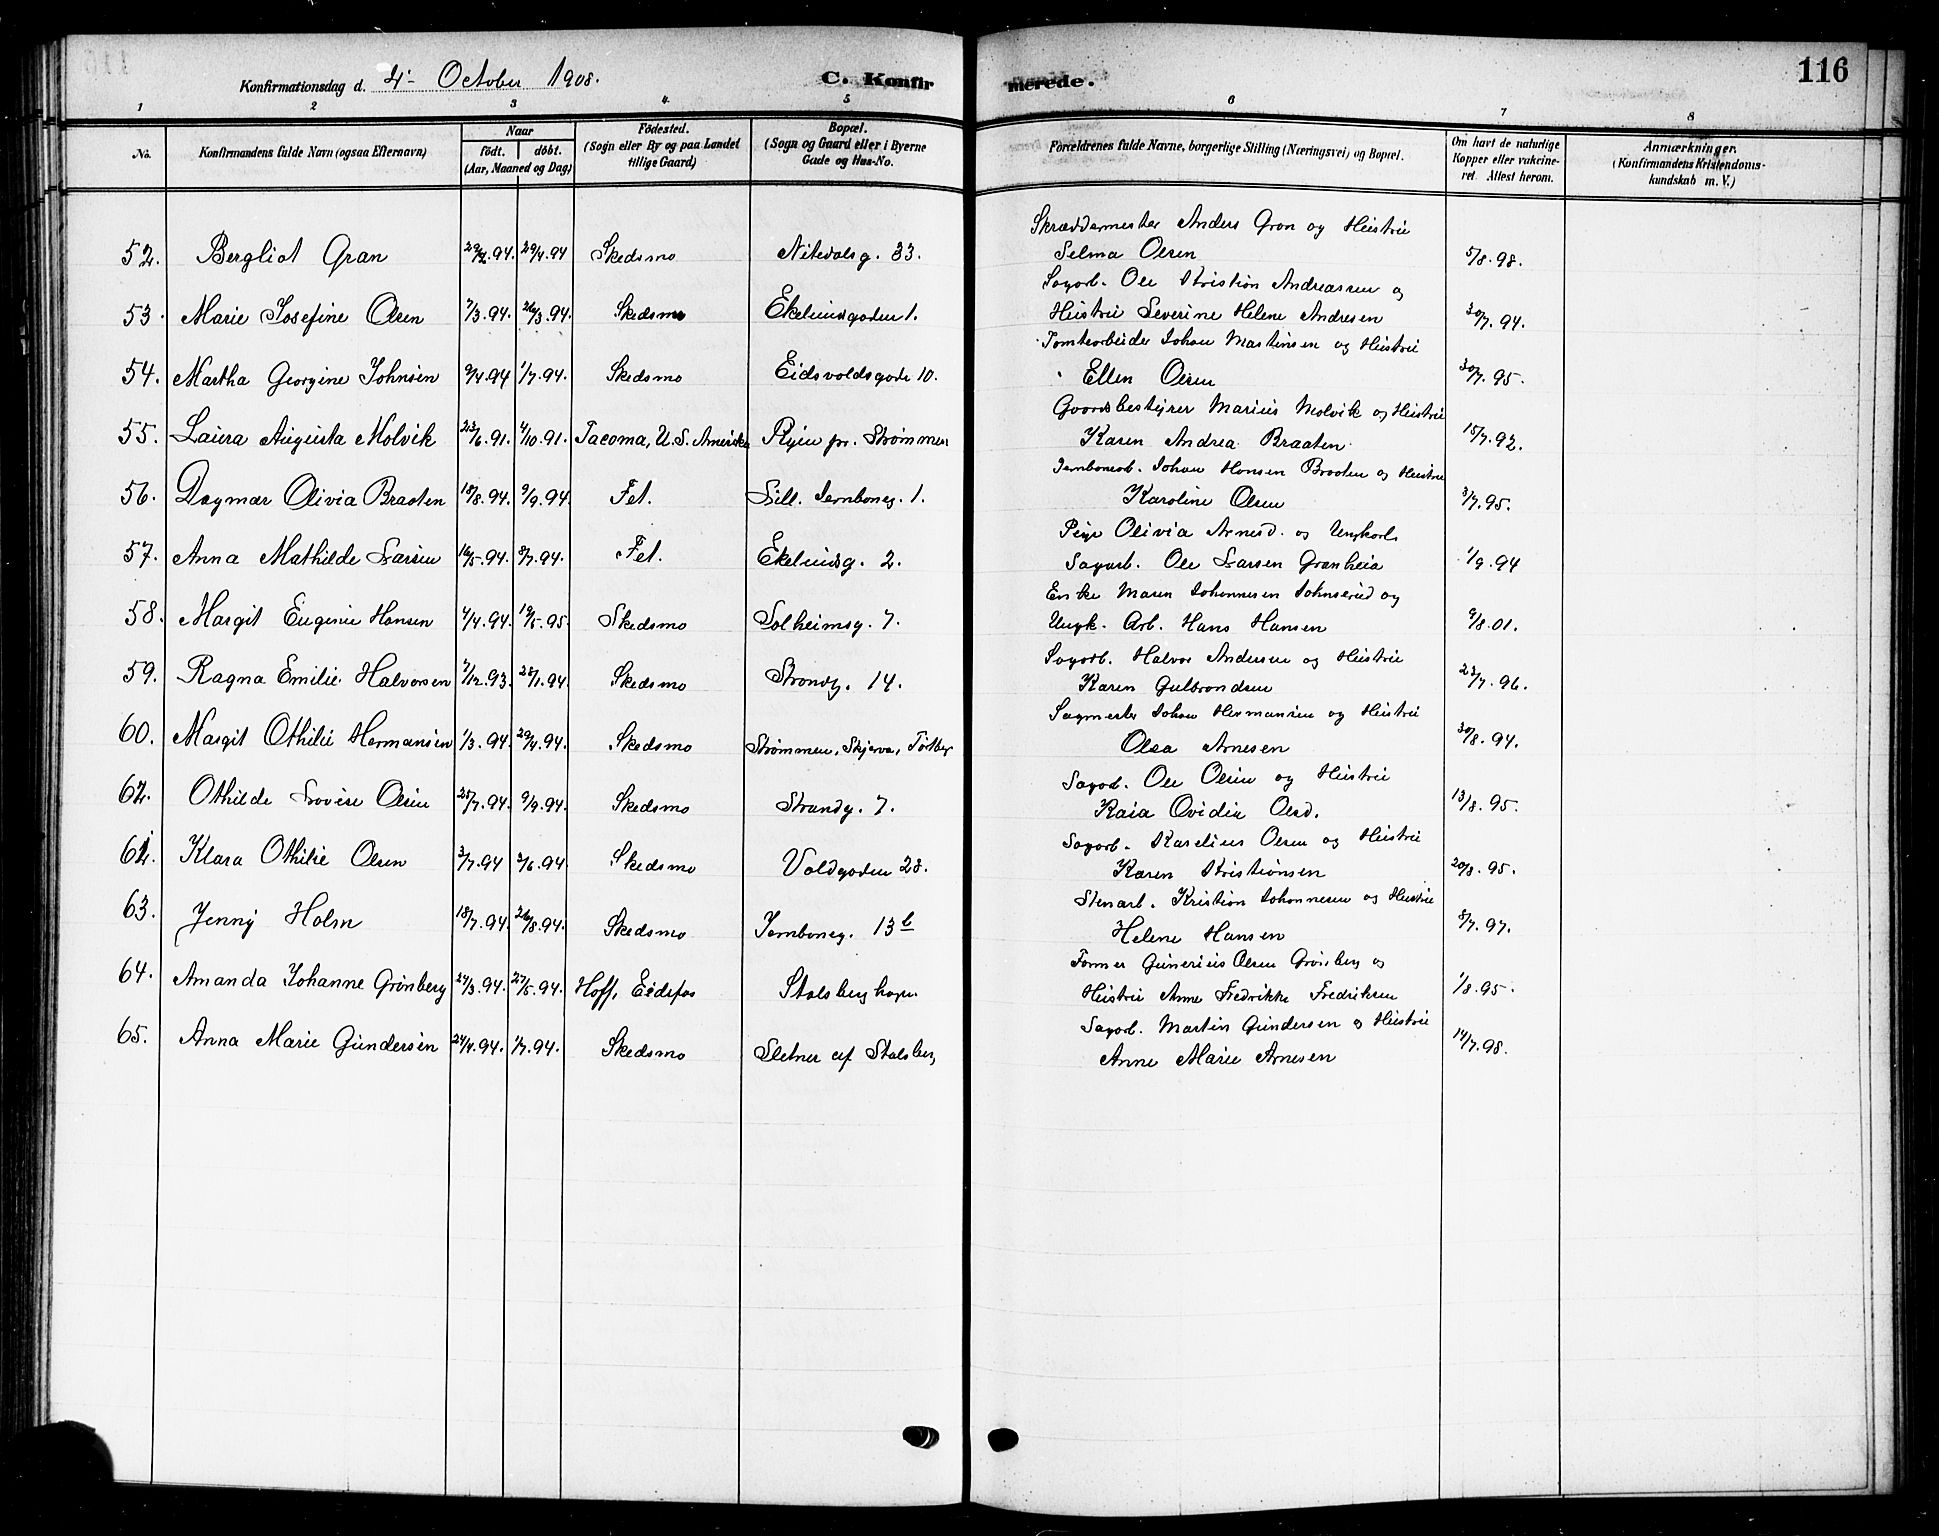 116
Konfirmationsdag d. 4de October 1908.
C. Konfirmerede.
1 2 3 4 5 6 7 8
No.
Konfirmandens fulde Navn (ogsaa Efternavn)
Naar
födt. döbt.
(Aar, Maaned og Dag)
Födested.
(Sogn eller By og paa Landet
tillige Gaard)
Bopæl.
(Sogn og Gaard eller i Byerne
Gade og Hus-No.
Forældrenes fulde Navne, borgerlige Stilling (Næringsvei) og Bopæl.
Om havt de naturlige
Kopper eller vakcine-
ret. Attest herom.
Anmærkninger.
(Konfirmandens Kristendoms-
kundskab m. V.)
Skræddermester Anders Gran og Hustru
52. Bergliot Gran 29/4.94 Skedsmo Nitedalsg. 33. Selma Olsen 5/8.98.
Sagarb. Ole Kristian Andreassen og
53. Marie Josefine Olsen 7/3.94. 26/3.94. Skedsmo Ekelundgaden 1. Hustru Severine Helene Andresen 30/7.94.
Tomtearbeider Johan Martinsen og Hustru
54. Martha Georgine Johnsen 9/4.94 1/7.94. Skedsmo Eidsvoldsgade 10. Ellen Olsen 30/7.95.
Gaardsbestyrer Marius Molvik og Hustru
55. Laura Augusta Molvik 23/6.91. 4/10.91. Tacoma, U.S. Amerika Ryen pr. Strømmen Karen Andrea Braaten 15/7.92.
Jernbanearb. Johan Hansen Braaten og Hustru
56. Dagmar Olivia Braaten 18/8.94. 9/9.94. Fet. Lill. Jernbaneg. 1. Karoline Olsen 3/7.95.
Pige Olivia Arnesd. og Ungkarl
57. Anna Mathilde Larsen 16/5.94. 8/7.94. Fet. Ekelundsg. 2. Sagarb. Ole Larsen Granheia 1/9.94
Enke Maren Johannesen Johnsrud og
58. Margit Eugenie Hansen 4/4.94. 19/5.95. Skedsmo Solheimsg. 7. Ungk. Arb. Hans Hansen 9/8.01.
Sagarb. Halvor Andersen og Hustru
59. Ragna Emilie Halvorsen 7/12.93. 28/1.94. Skedsmo Strandg. 14. Karen Gulbrandsen 23/7.96.
Sagmester Johan Hermansen og Hustru
60. Margit Othilie Hermansen 1/3.94. 29/4.94. Skedsmo Strømmen, Skjerva, Olea Arnesen 30/8.94.
Sagarb. Ole Olsen og Hustru
62. Othilde Lovise Olsen 25/7.94. 9/9.94. Skedsmo Strandg. 7. Kaia Ovidia Olsd. 13/8.95.
Sagarb. Karelius Olsen og Hustru
61. Klara Othilie Olsen 3/6.94. Skedsmo Voldgaden 28. Karen Kristiansen 20/8.95.
Stenarb. Kristian Johannesen og Hustru
63. Jenny Holm 18/7.94. 26/8.94. Skedsmo Jernbaneg. 13b Helene Hansen 8/7.97.
Former Gunerius Olsen Grønberg og
64. Amanda Johanne Grønberg 24/3.94. 27/5.94. Hoff, Eidsfos Stalsberghagen. Hustru Anne Fredrikke Fredriksen 1/8.95.
Sagarb. Martin Gundersen og Hustru
65. Anna Marie Gundersen 24/4.94. 1/7.94. Skedsmo Sletner af Stalsberg Anne Marie Arnesen 14/7.98.